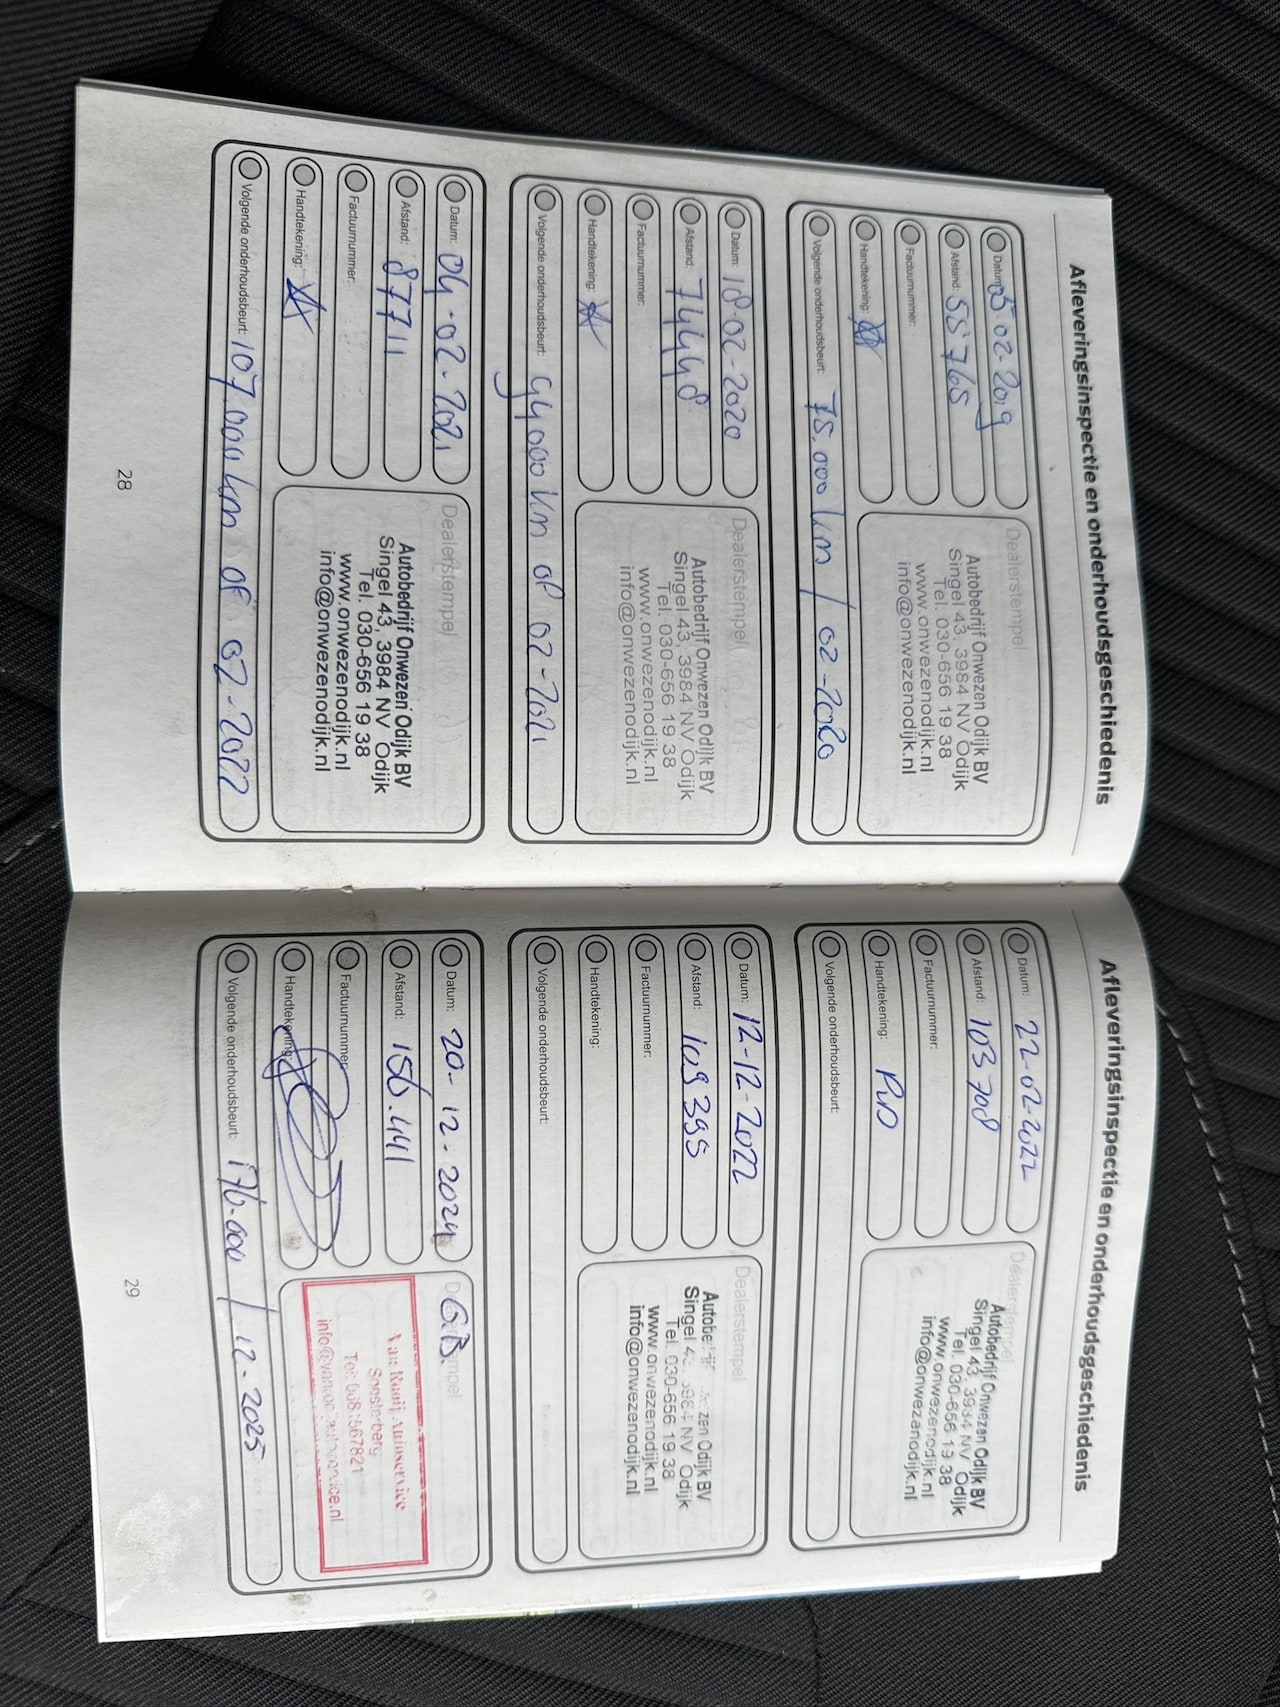 Afleveringsinspectie en onderhoudsgeschiedenis
Datum: 05-02-2019
Afstand: 55765
Factuurnummer:
Handtekening:
Volgende onderhoudsbeurt: 75.000 km / 02-2020
Dealerstempel
Autobedrijf Onwezen Odijk BV
Singel 43, 3984 NV Odijk
Tel. 030-656 19 38
www.onwezenodijk.nl
info@onwezenodijk.nl
Datum: 18-02-2020
Afstand: 74448
Factuurnummer:
Handtekening:
Volgende onderhoudsbeurt: 94000 km of 02-2021
Dealerstempel
Autobedrijf Onwezen Odijk BV
Singel 43, 3984 NV Odijk
Tel. 030-656 19 38
www.onwezenodijk.nl
info@onwezenodijk.nl
Datum: 04-02-2021
Afstand: 87711
Factuurnummer:
Handtekening:
Volgende onderhoudsbeurt: 107.000 km of 02-2022
Dealerstempel
Autobedrijf Onwezen Odijk BV
Singel 43, 3984 NV Odijk
Tel. 030-656 19 38
www.onwezenodijk.nl
info@onwezenodijk.nl
28
Afleveringsinspectie en onderhoudsgeschiedenis
Datum: 22-02-2022
Afstand: 103708
Factuurnummer:
Handtekening:
Volgende onderhoudsbeurt:
Dealerstempel
Autobedrijf Onwezen Odijk BV
Singel 43, 3984 NV Odijk
Tel. 030-656 19 38
www.onwezenodijk.nl
info@onwezenodijk.nl
Datum: 12-12-2022
Afstand: 109395
Factuurnummer:
Handtekening:
Volgende onderhoudsbeurt:
Dealerstempel
Odijk BV
Singel 3984 NV Odijk
Tel. 030-656 19 38
www.onwezenodijk.nl
info@onwezenodijk.nl
Datum: 20-12-2024
Afstand: 156.441
Factuurnummer:
Handtekening:
Volgende onderhoudsbeurt: 176.000 / 12-2025
G.B.
Van Rooij Autoservice
Soesterberg
29